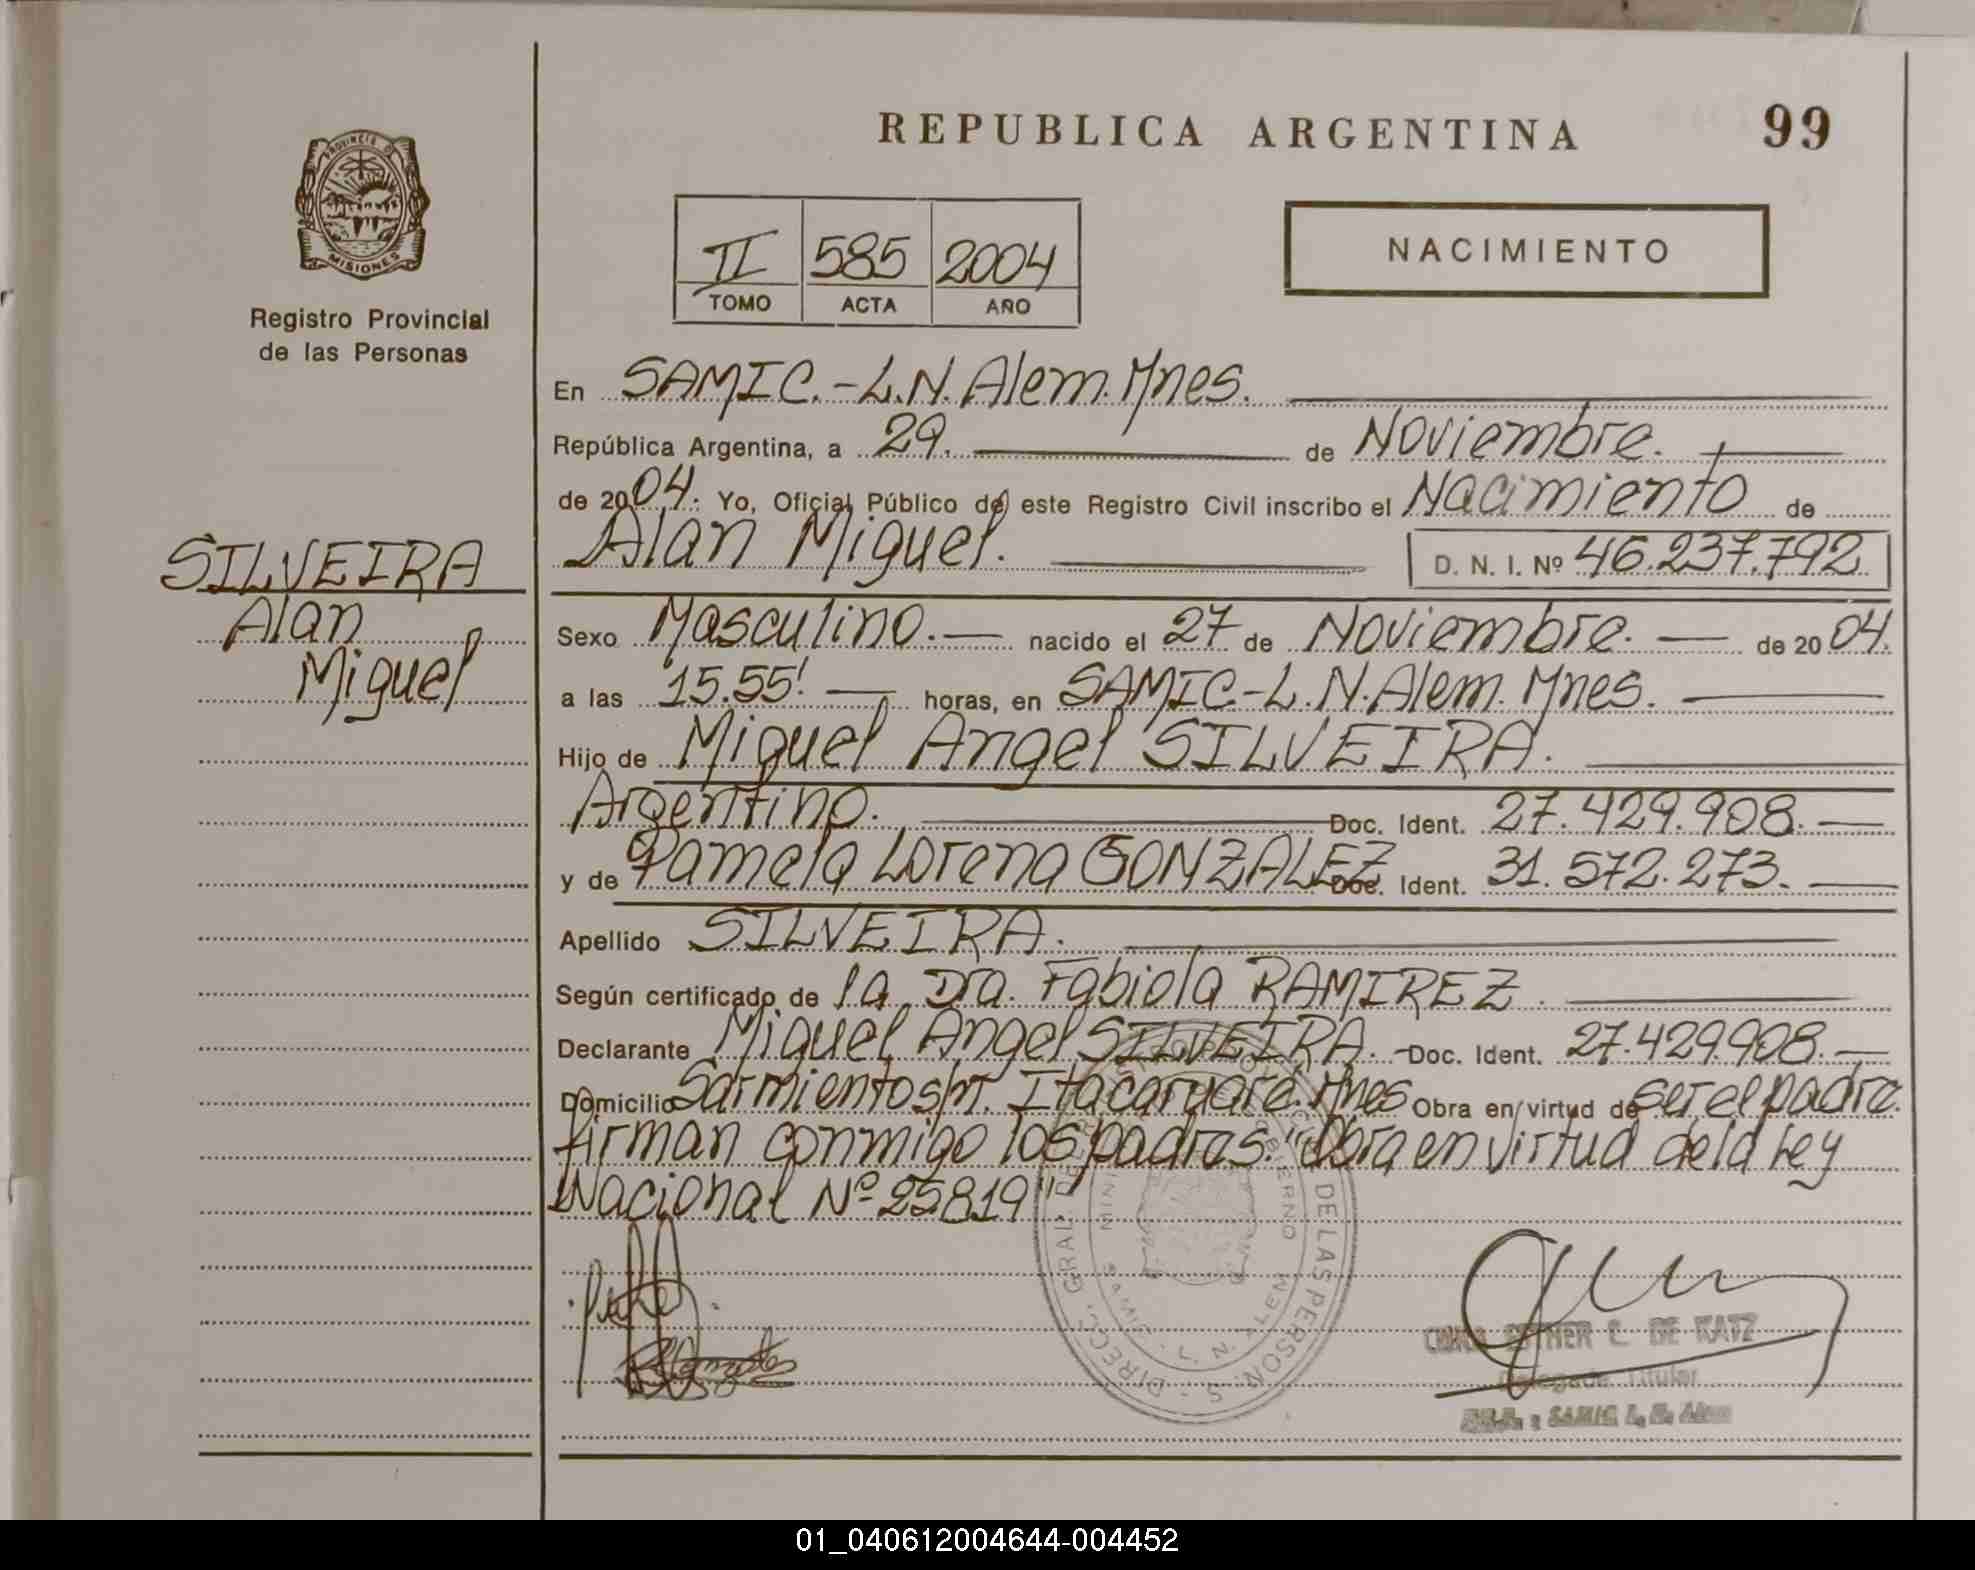 REPUBLICA ARGENTINA 99
PROVINCIA D
MISIONES
Registro Provincial
de las Personas
II 585 2004
TOMO ACTA AÑO
NACIMIENTO
En SAMIC.-L.N.Alem.Mnes.
República Argentina, a 29. de Noviembre.
de 2004. Yo, Oficial Público de este Registro Civil inscribo el Nacimiento de
Alan Miguel. D. N. I. Nº 46.237.792
SILVEIRA
Alan
Miguel
Sexo Masculino. nacido el 27 de Noviembre. de 2004.
a las 15.55' horas, en SAMIC-L.N.Alem.Mnes.
Hijo de Miguel Angel SILVEIRA.
Argentino. Doc. Ident. 27.429.908.
y de Pamela Lorena GONZALEZ Doc. Ident. 31.572.273.
Apellido SILVEIRA.
Según certificado de la Dra. Fabiola RAMIREZ.
Declarante Miguel Angel SILVEIRA. Doc. Ident. 27.429.908.
Domicilio Sarmiento s/n. Itacaruaré.Mnes Obra en virtud de ser el padre.
firman conmigo los padres. "Obra en virtud de la Ley
Nacional Nº 25819"
DE LAS PERSON S - DIRECC. GRAL. DE
GOBIERNO
SAMIC. L. N. ALEM
ESTHER C. DE KATZ
Delegada Titular
SAMIC L. N. Alem
01_040612004644-004452